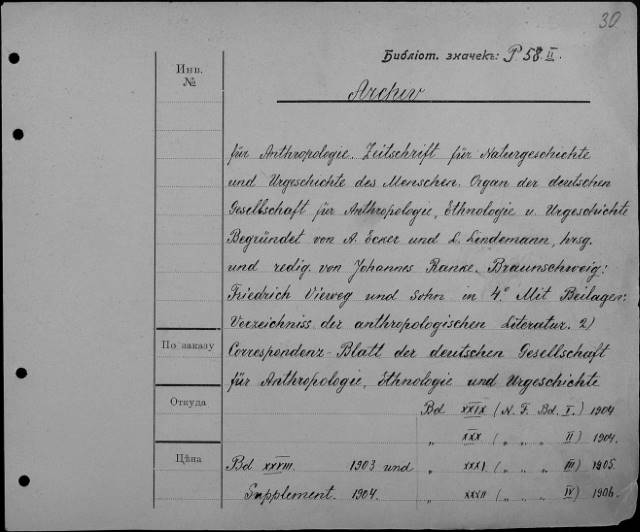 30
Библіот. значекъ: P 58. II.
Инв.
№
Archiv
für Anthropologie. Zeitschrift für Naturgeschichte
und Urgeschichte des Menschen. Organ der deutschen
Gesellschaft für Anthropologie, Ethnologie u. Urgeschichte
Begründet von A. Ecker und L. Lindemann, hrsg.
und redig. von Johannes Ranke. Braunschweig:
Friedrich Vieweg und sohn in 4º Mit Beilagen:
Verzeichniss der anthropologischen Literatur. 2)
По заказу
Correspondenz-Blatt der deutschen Gesellschaft
für Anthropologie, Ethnologie und Urgeschichte
Откуда
Bd XXIX (N. F. Bd. I.) 1904
„ XXX ( „ „ „ II) 1904.
Цѣна
Bd XXVIII. 1903 und „ XXXI. ( „ „ „ III) 1905.
Supplement. 1904. „ XXXII ( „ „ „ IV) 1906.